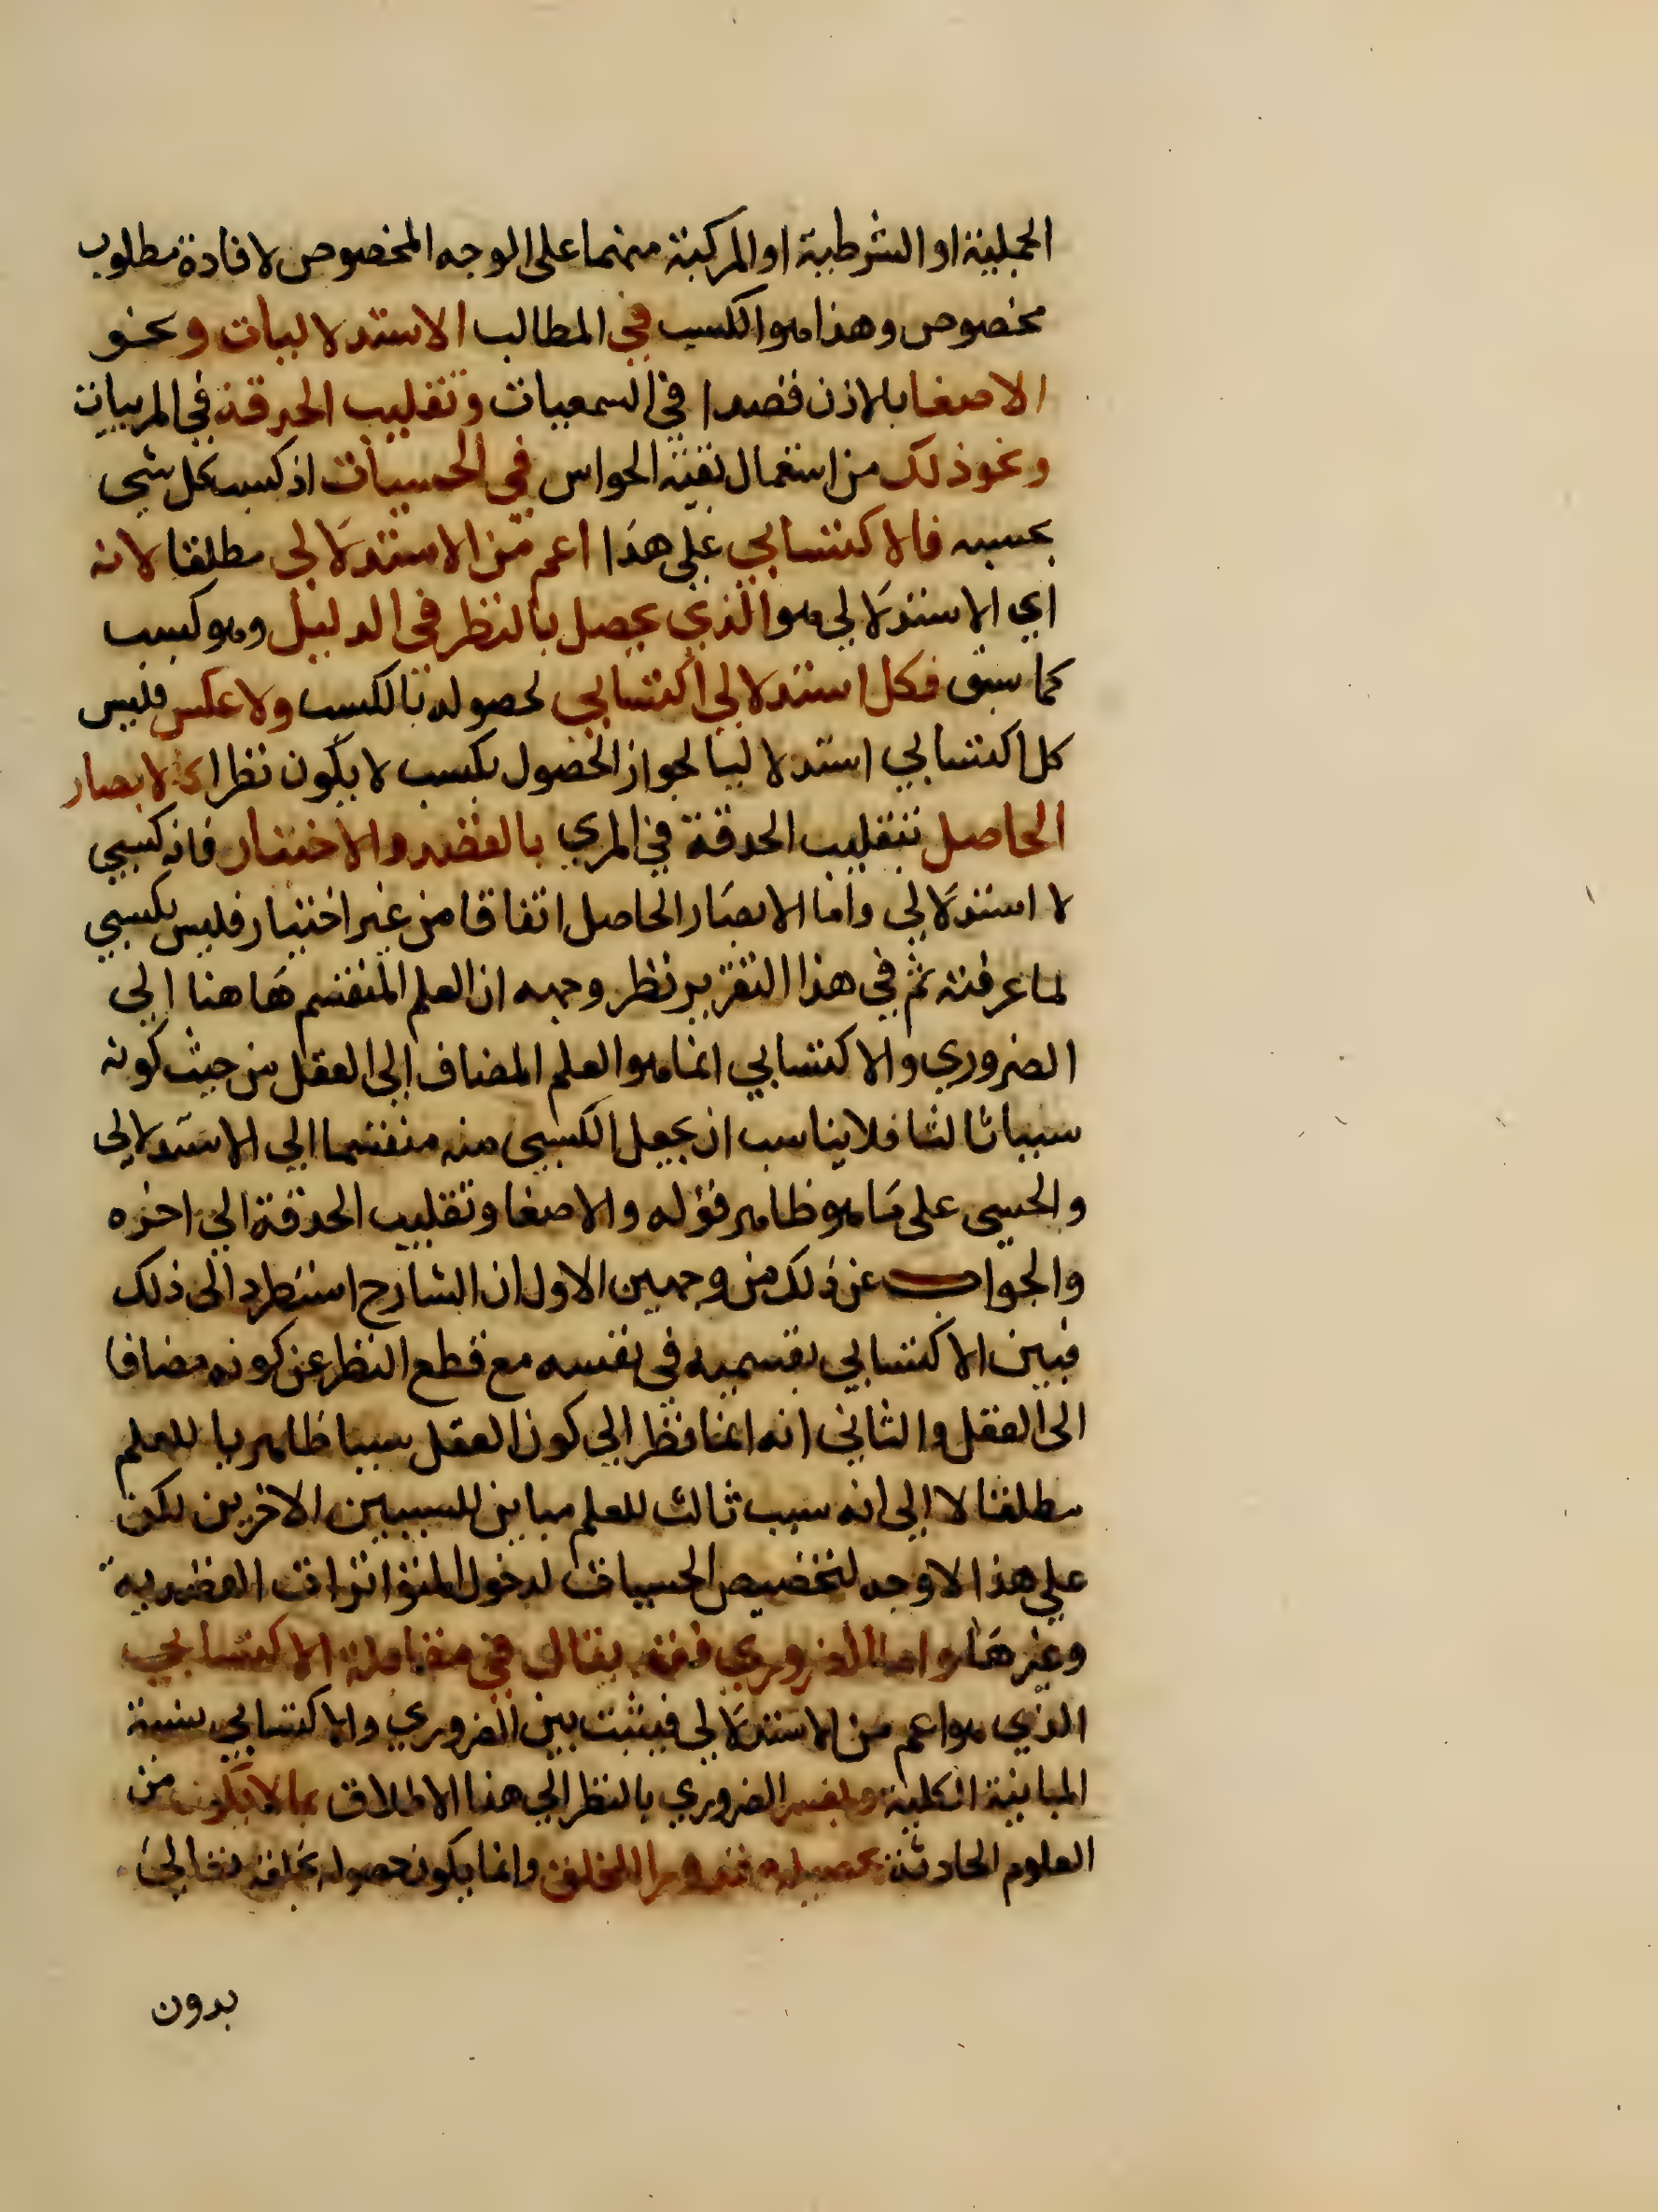 الحملية او الشرطية او المركبة منهما على الوجه المخصوص لافادة مطلوب
مخصوص وهذا هو الكسب في المطالب الاستدلاليات ونحو
الاصغا بالاذن قصدا في السمعيات وتقليب الحدقة في المرييات
ونحو ذلك من استعمال بقية الحواس في الحسيات اذ كسب كل شي
بحسبه فالاكتسابي على هذا اعم من الاستدلالي مطلقا لانه
اي الاستدلالي هو الذي يحصل بالنظر في الدليل وهو كسب
كما سبق فكل استدلالي اكتسابي لحصوله بالكسب ولا عكس فليس
كل اكتسابي استدلاليا لجواز الحصول بكسب لا يكون نظرا كالابصار
الحاصل بتقليب الحدقة في المري بالقصد والاختيار فانه كسبي
لا استدلالي واما الابصار الحاصل اتفاقا من غير اختيار فليس بكسبي
لما عرفته ثم في هذا التقرير نظر وجهه ان العلم المنقسم هاهنا الى
الضروري والاكتسابي انما هو العلم المضاف الى العقل من حيث كونه
سببا ثالثا فلا يناسب ان يجعل الكسبي منه منقسما الى الاستدلالي
والحسي على ما هو ظاهر قوله والاصغا وتقليب الحدقة الى اخره
والجواب عن ذلك من وجهين الاول ان الشارح استطرد الى ذلك
فبين الاكتسابي بقسميه في نفسه مع قطع النظر عن كونه مضافا
الى العقل والثاني انه انما نظر الى كون العقل سببا ظاهريا للعلم
مطلقا لا الى انه سبب ثالث للعلم مباين للسببين الاخرين لكن
على هذا لا وجه لتخصيص الحسيات لدخول المتواترات القصدية
وغيرها واما الضروري فقد يقال في مقابلة الاكتسابي
الذي هو اعم من الاستدلالي فيثبت بين الضروري والاكتسابي نسبة
المباينة الكلية ويفسر الضروري بالنظر الى هذا الاطلاق بما لا يكون من
العلوم الحادثة تحصيله مقدورا للمخلوق وانما يكون حصوله بخلقه تعالى
بدون